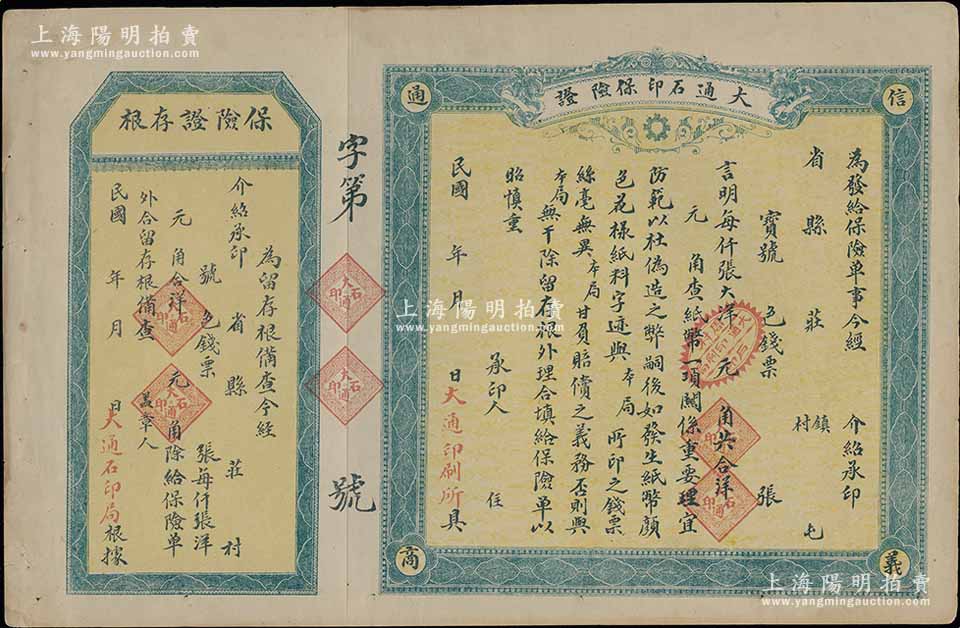 上海陽明拍賣
www.yangmingauction.com
大通石印保險證
信
通
義
商
為發給保險單事今經 介紹承印
省 縣 莊 鎮 村
寶號 色錢票 張
言明每仟張大洋 元 角共合洋
元 角查紙幣一項關係重要理宜
防範以杜偽造之弊嗣後如發生紙幣顏
色花樣紙料字迹與本局所印之錢票
絲毫無異本局甘負賠償之義務否則與
本局無干除留存根外理合填給保險單以
昭慎重
承印人 住
民國 年 月 日大通印刷所具
字第 號
大通石印
大通石印
大通石印
保險證存根
為留存根備查今經
介紹承印 省 縣 莊 村
號 色錢票 張每仟張洋
元 角合洋 元 角除給保險單
外合留存根備查 蓋章人
民國 年 月 日大通石印局根據
大通石印
大通石印
上海陽明拍賣
www.yangmingauction.com
上海陽明拍賣
www.yangmingauction.com